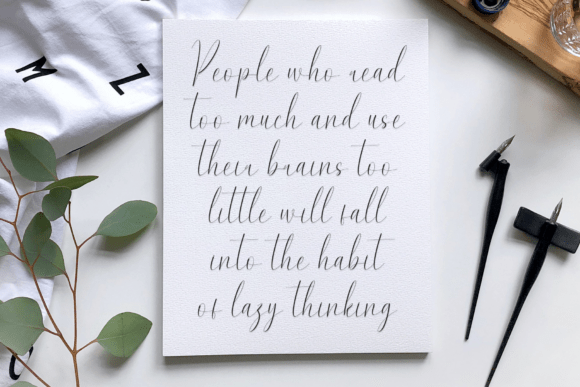 People who read
too much and use
their brains too
little will fall
into the habit
of lazy thinking
M
Z